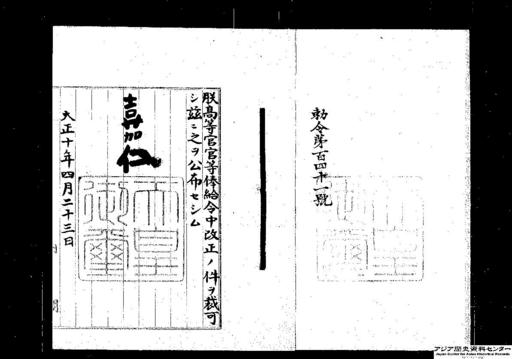 勅令第百四十一號
朕高等官官等俸給令中改正ノ件ヲ裁可
シ茲ニ之ヲ公布セシム
嘉仁
天皇御璽
大正十年四月二十三日
アジア歴史資料センター
Japan Center for Asian Historical Records